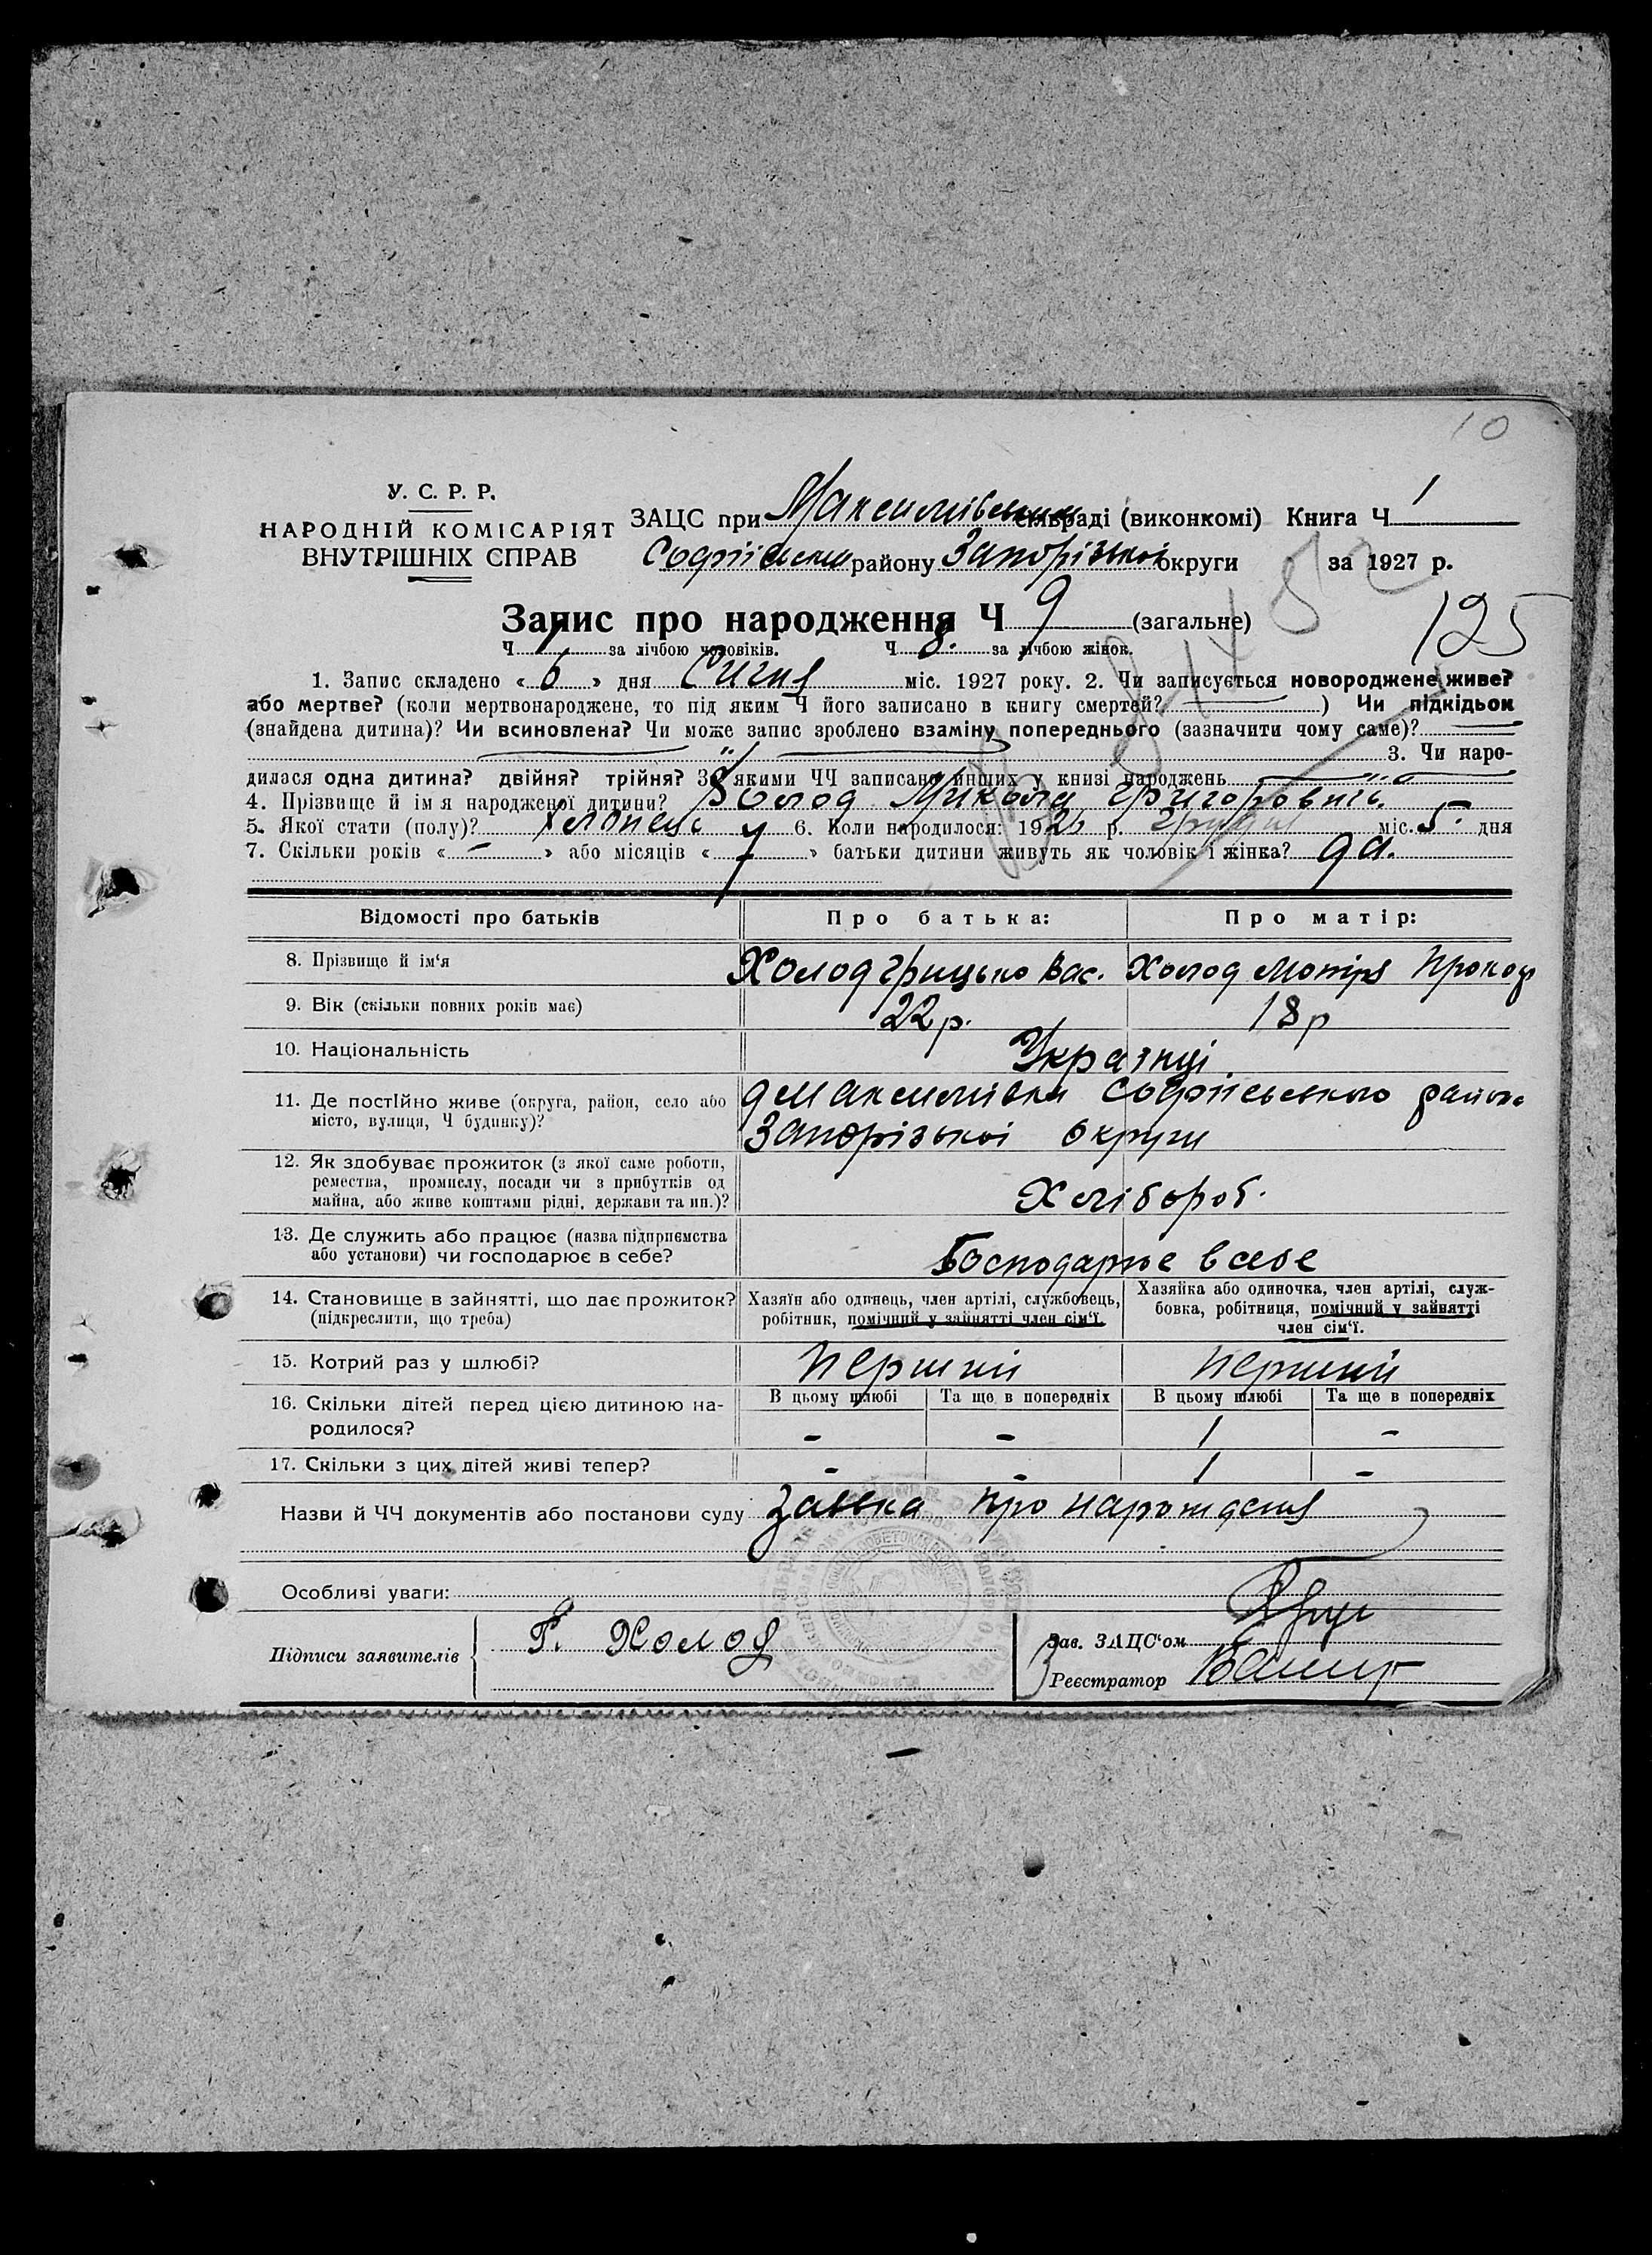 10
У. С. Р. Р.
НАРОДНІЙ КОМІСАРІЯТ
ВНУТРІШНІХ СПРАВ
ЗАЦС при сільраді (виконкомі) Книга Ч 1
району Запорізької округи за 1927 р.
Запис про народження Ч 9 (загальне)
125
Ч за лічбою чоловіків. Ч 8. за лічбою жінок.
1. Запис складено « 6 » дня Січня міс. 1927 року. 2. Чи записується новороджене живе?
або мертве? (коли мертвонароджене, то під яким Ч його записано в книгу смертей? ) Чи підкідьок
(знайдена дитина)? Чи всиновлена? Чи може запис зроблено взаміну попереднього (зазначити чому саме)?
3. Чи наро-
дилася одна дитина? двійня? трійня? З якими ЧЧ записано инших у книзі народжень
4. Прізвище й імя народженої дитини? Холод Микола Григоровичь.
5. Якої стати (полу)? Хлопець 6. Коли народилося: 1926 р. Грудня міс. 5 дня
7. Скільки років « - » або місяців « » батьки дитини живуть як чоловік і жінка? да.
Відомості про батьків
Про батька:
Про матір:
8. Прізвище й ім‘я
Холод Грицько Вас. Холод Мотря Прокоп
9. Вік (скільки повних років має)
22 р. 18 р
10. Національність
Українці
11. Де постійно живе (округа, район, село або
місто, вулиця, Ч будинку)?
Софіієвського району
Запорізької округи
12. Як здобуває прожиток (з якої саме роботи,
ремества, промислу, посади чи з прибутків од
майна, або живе коштами рідні, держави та ин.)?
Хлібороб.
13. Де служить або працює (назва підприємства
або установи) чи господарює в себе?
Господарює в себе
14. Становище в зайнятті, що дає прожиток?
(підкреслити, що треба)
Хазяїн або одинець, член артілі, службовець,
робітник, помічний у зайнятті член сім‘ї.
Хазяйка або одиночка, член артілі, служ-
бовка, робітниця, помічний у зайнятті
член сім‘ї.
15. Котрий раз у шлюбі?
Перший Перший
16. Скільки дітей перед цією дитиною на-
родилося?
В цьому шлюбі Та ще в попередніх В цьому шлюбі Та ще в попередніх
- - 1 -
17. Скільки з цих дітей живі тепер?
- - 1 -
Назви й ЧЧ документів або постанови суду Заявка про нарождения
Особливі уваги:
Підписи заявителів
Г. Холод
Зав. ЗАЦС‘ом
Реєстратор